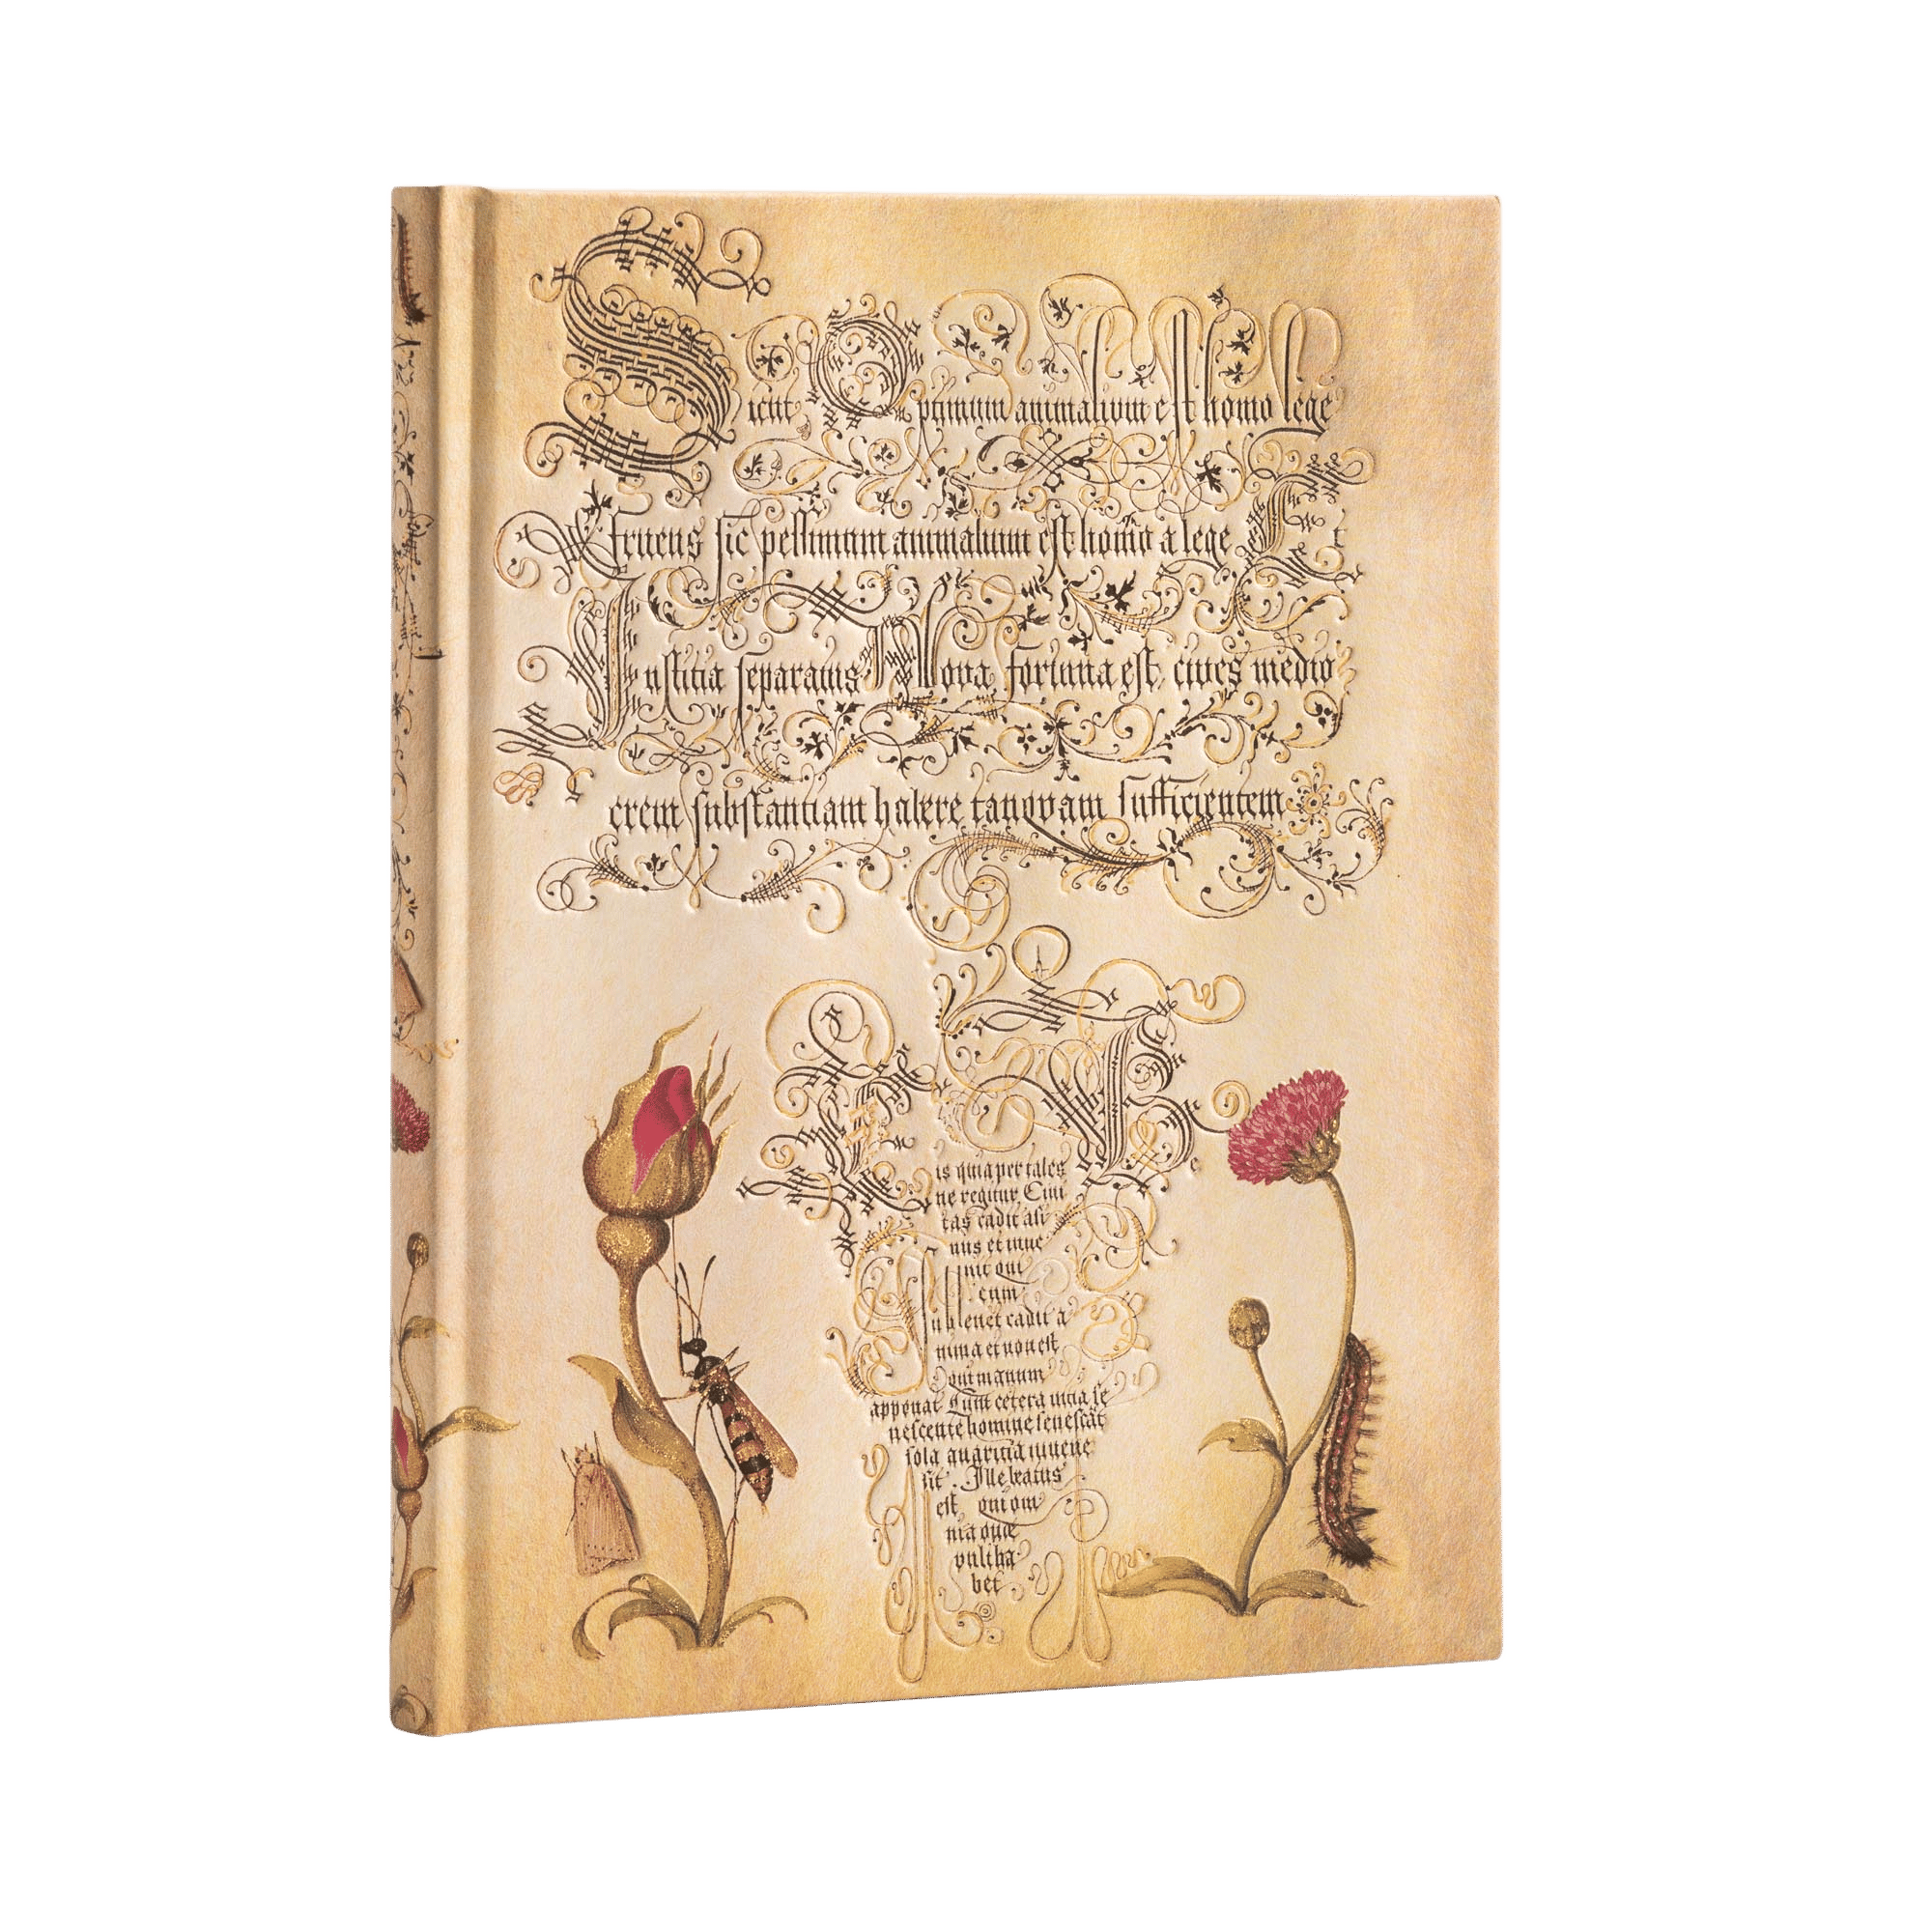 Sicut Optimum animalium est homo lege
fruens sic pessimum animalium est homo a lege Et
Iustitia separatus Nova fortuna est cives medio
crem substantiam habere tanquam sufficientem
is quia per tales
ne regitur Civi
tas cadit asi
nus et inve
nit qui
eum
sublevet cadit a
nima et non est
qui manum
apponat Cum cetera vitia se
nescente homine senescāt
sola avaritia iuvene
sit. Ille beatus
est qui om
nia quæ
vult ha
bet